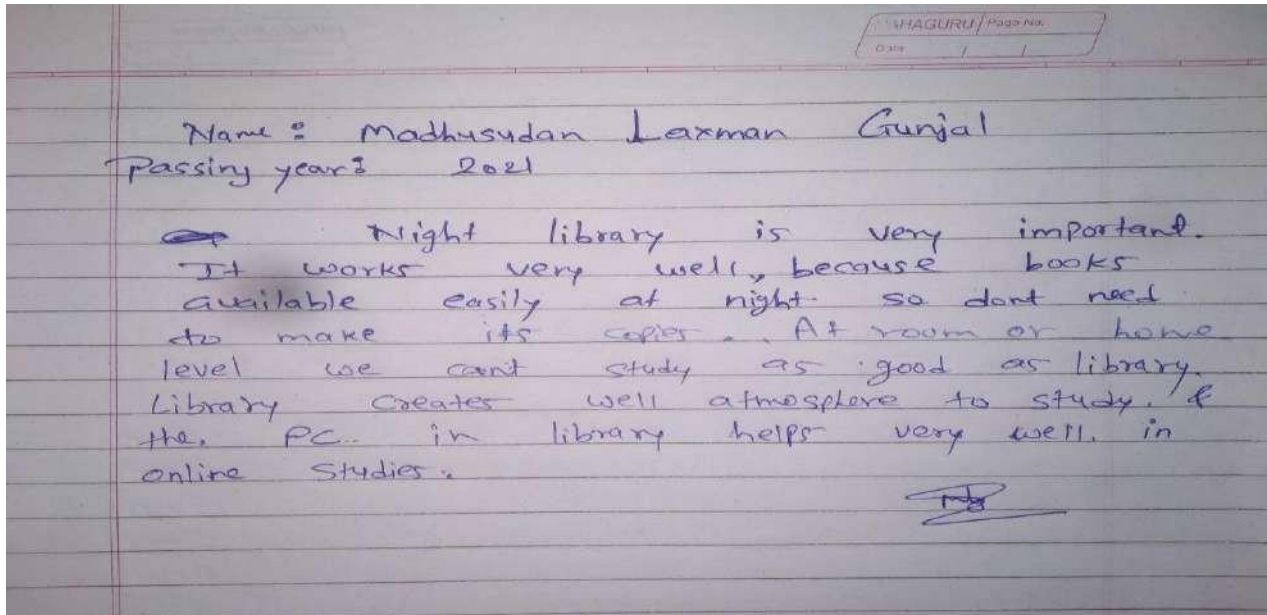 HAGURU Page No.
Date / /
Name : Madhusudan Laxman Gunjal
Passing year : 2021
Night library is very important.
It works very well, because books
available easily at night. so dont need
to make its copies. At room or home
level we can't study as good as library.
Library creates well atmosphere to study. &
the. PC. in library helps very well. in
online Studies.